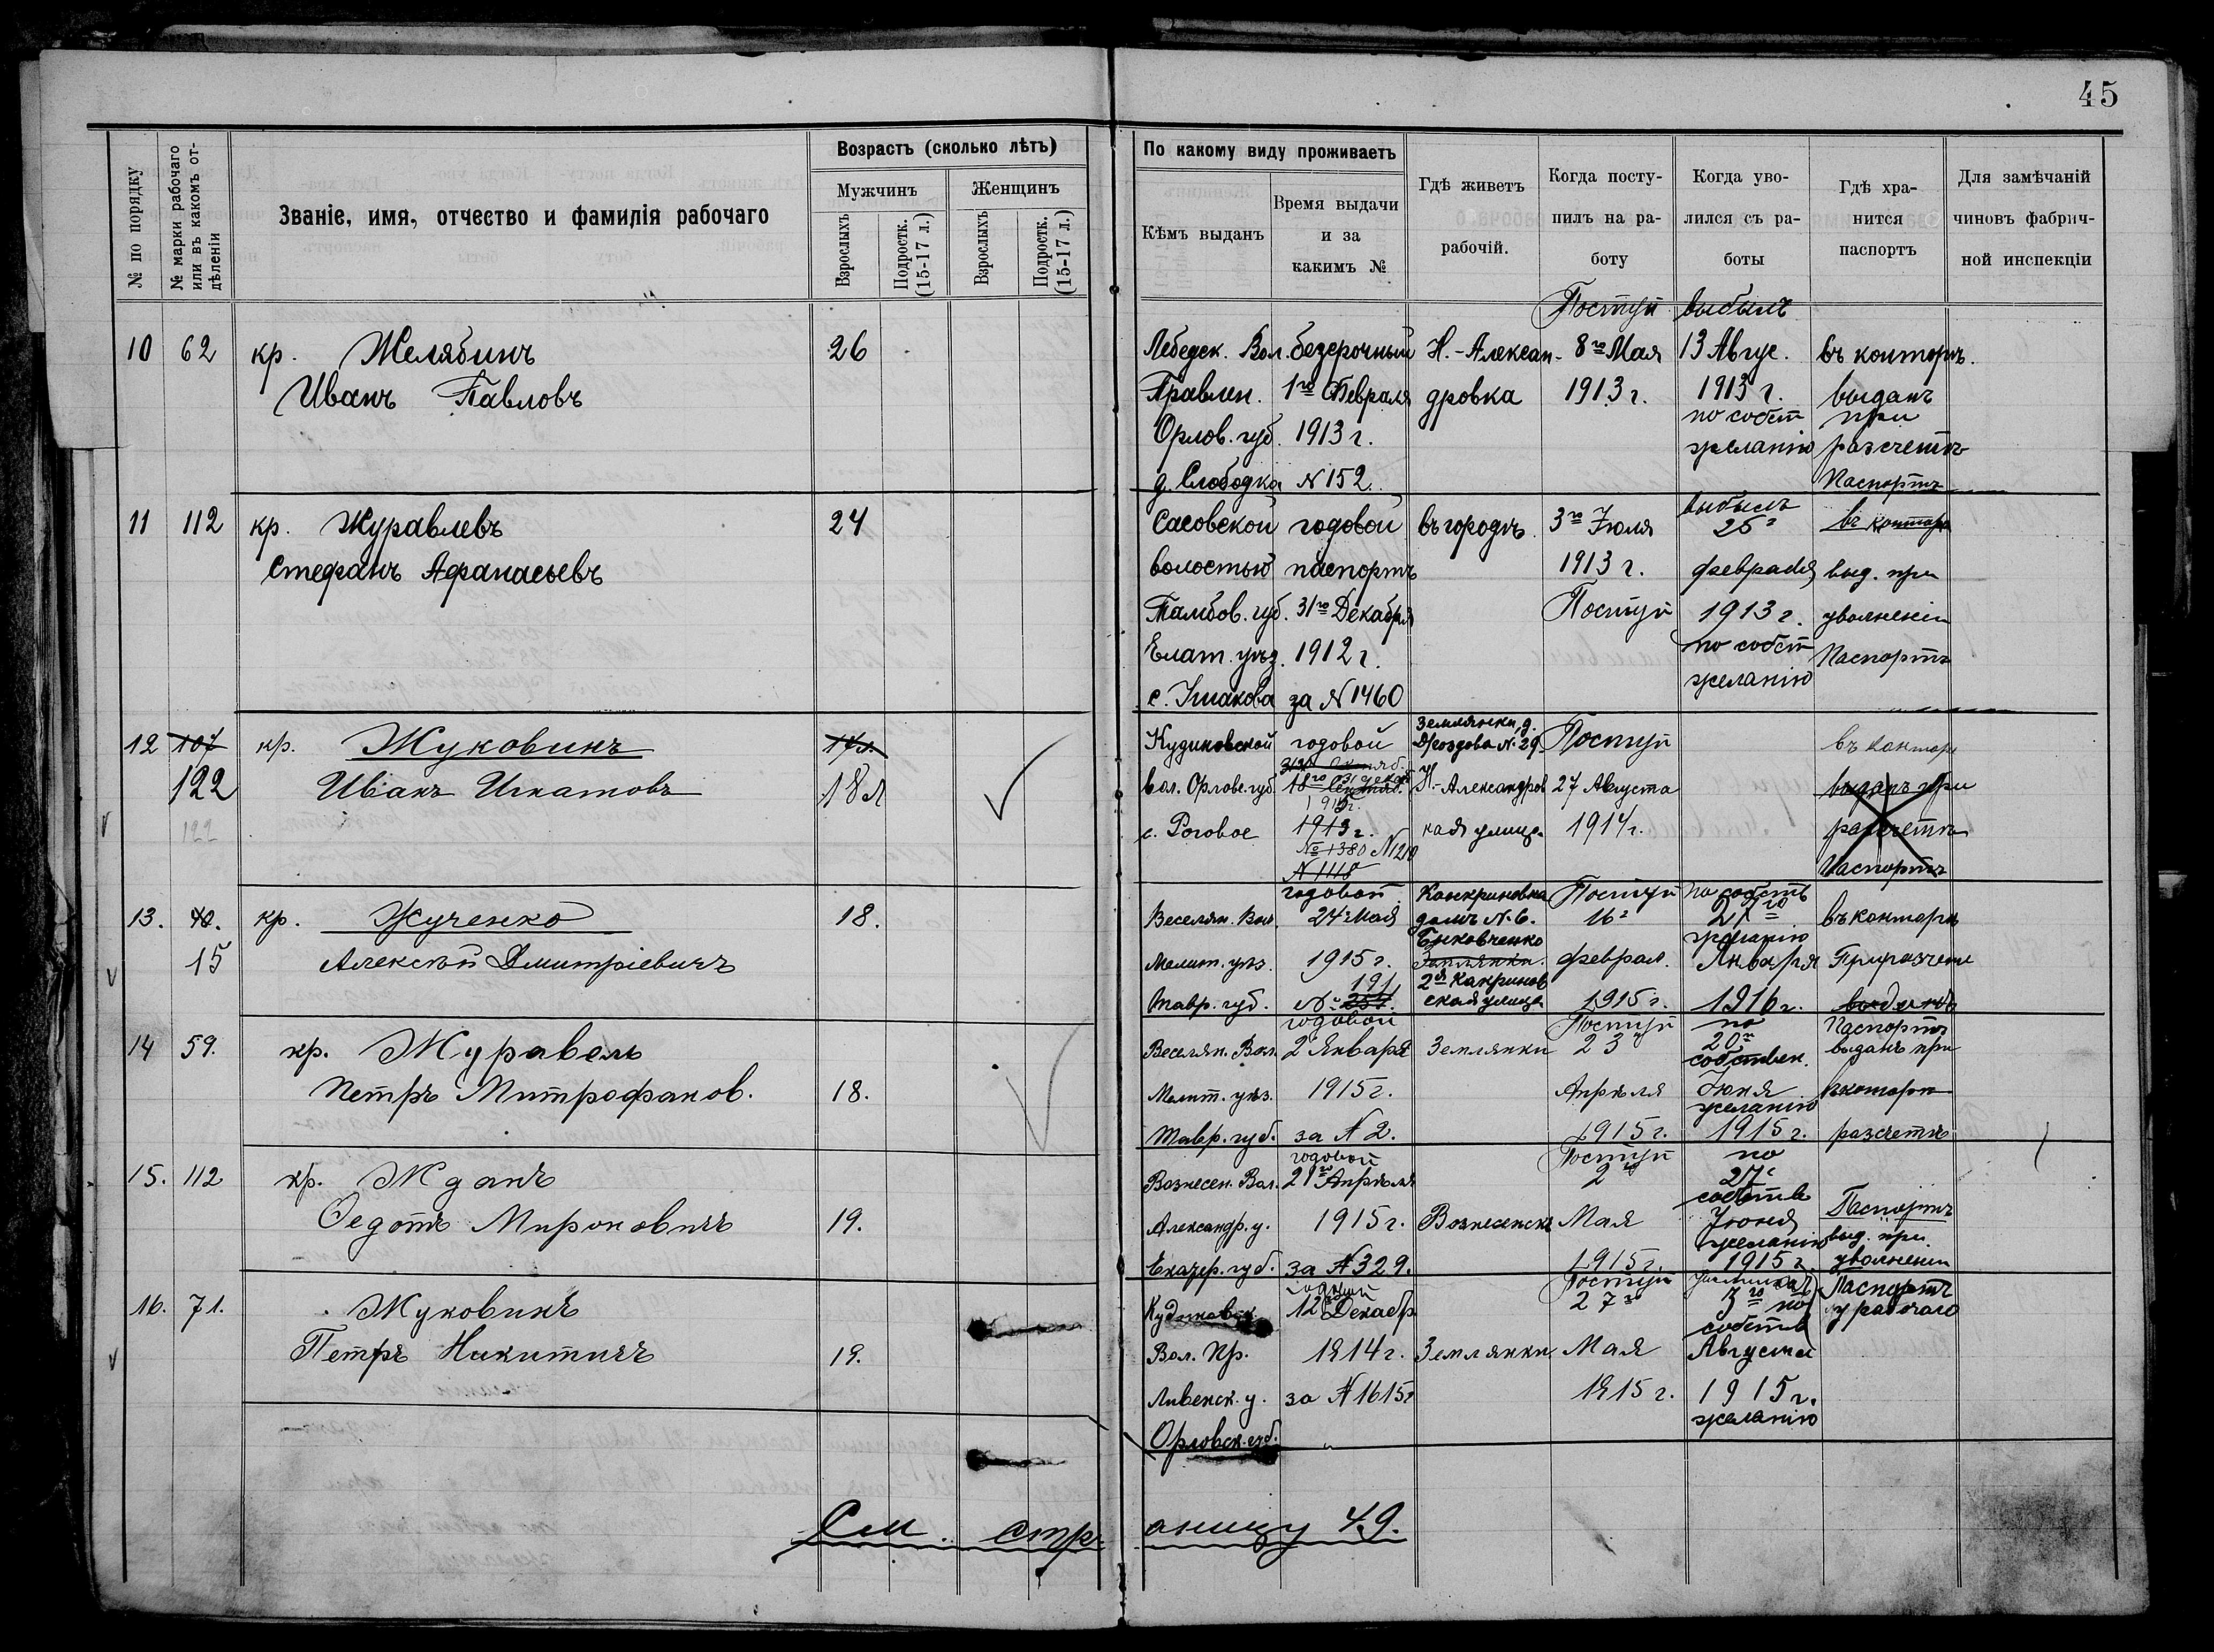 45
№ по порядку
№ марки рабочаго или въ какомъ отдѣленіи
Званіе, имя, отчество и фамилія рабочаго
Возрастъ (сколько лѣтъ)
Мужчинъ
Женщинъ
Взрослыхъ
Подростк. (15-17 л.)
Взрослыхъ
Подростк. (15-17 л.)
По какому виду проживаетъ
Кѣмъ выданъ
Время выдачи
и за
какимъ №
Гдѣ живетъ
рабочій.
Когда посту-
пилъ на ра-
боту
Когда уво-
лился съ ра-
боты
Гдѣ хра-
нится
паспортъ
Для замѣчаній
чиновъ фабрич-
ной инспекціи
10 62 кр. Желябинъ
Иванъ Павловъ
26
Лебедск. Вол.
Правлен.
Орлов. губ.
д. Слободка
безсрочный
1го Февраля
1913 г.
N 152.
Н.-Алексан-
дровка
Поступ
8го Мая
1913 г.
выбылъ
13 Авгус.
1913 г.
по собст
желанію
въ конторѣ.
выданъ
при
разсчетѣ
Паспортъ
11 112 кр. Журавлевъ
Стефанъ Афанасьевъ
24
Сасовской
волостью
Тамбов. губ.
Елат. уѣзд.
с. Ушакова
годовой
паспортъ
31го Декабря
1912 г.
за N 1460
въ городѣ.
3го Іюля
1913 г.
Поступ
выбылъ
25г
февраля
1913 г.
по собст
желанію
въ контор
выд. при
увольненіи
Паспортъ
12 107 кр. Жуковинъ
122 Иванъ Игнатовъ
122
17 л.
18 л
Кудиновской
вол. Орлов. губ.
с. Роговое
годовой
1913 г.
№ 1380 N 1210
N 1118
Землянки, д.
Дроздова N. 29
Н.-Александров
кая улица
Поступ
27 Августа
1914 г.
въ контор
выданъ при
разсчетѣ
Паспортъ
13. кр. Жученко
15 Алексѣй Дмитріевичъ
18.
Веселян. Вол.
Мелит. уѣз.
Тавр. губ.
годовой
24г Мая
1915 г.
191
Канкриновка
домъ N. 6.
Быковченко
Землянки.
2я Канкринов
ская улица
Поступ
16г
феврал.
1915 г.
по собств
27го
желанію
Января
1916 г.
въ конторѣ
При разчете
выданъ
14 59. кр. Журавель
Петръ Митрофанов.
18.
Веселян. Вол.
Мелит. уѣз.
Тавр. губ.
годовой
2 Января
1915 г.
за N 2.
Землянки
Поступ
23
Апрѣля
1915 г.
по
20го
собствен.
Іюня
желанію
1915 г.
Паспортъ
выданъ при
разсчетѣ
15. 112 кр. Жданъ
Федотъ Мироновичъ
19.
Вознесен. Вол.
Александр. у.
Екатер. губ.
годовой
21го Апрѣля
1915 г.
за N 329.
Вознесенскѣ
Поступ
2го
Мая
1915 г.
по
27г
собств
Іюня
желанію
1915 г.
Паспортъ
выд. при
увольненіи
16. 71. Жуковинъ
Петръ Никитичъ
19.
Кудиновск.
Вол. Пр.
Ливенск. у.
Орловск. губ.
12 Декабр
1914 г.
за N 1615
Землянки
Поступ
27го
Мая
1915 г.
3го по
собств
Августа
1915 г.
желанію
Паспортъ
у рабочаго
См. страницу 49.